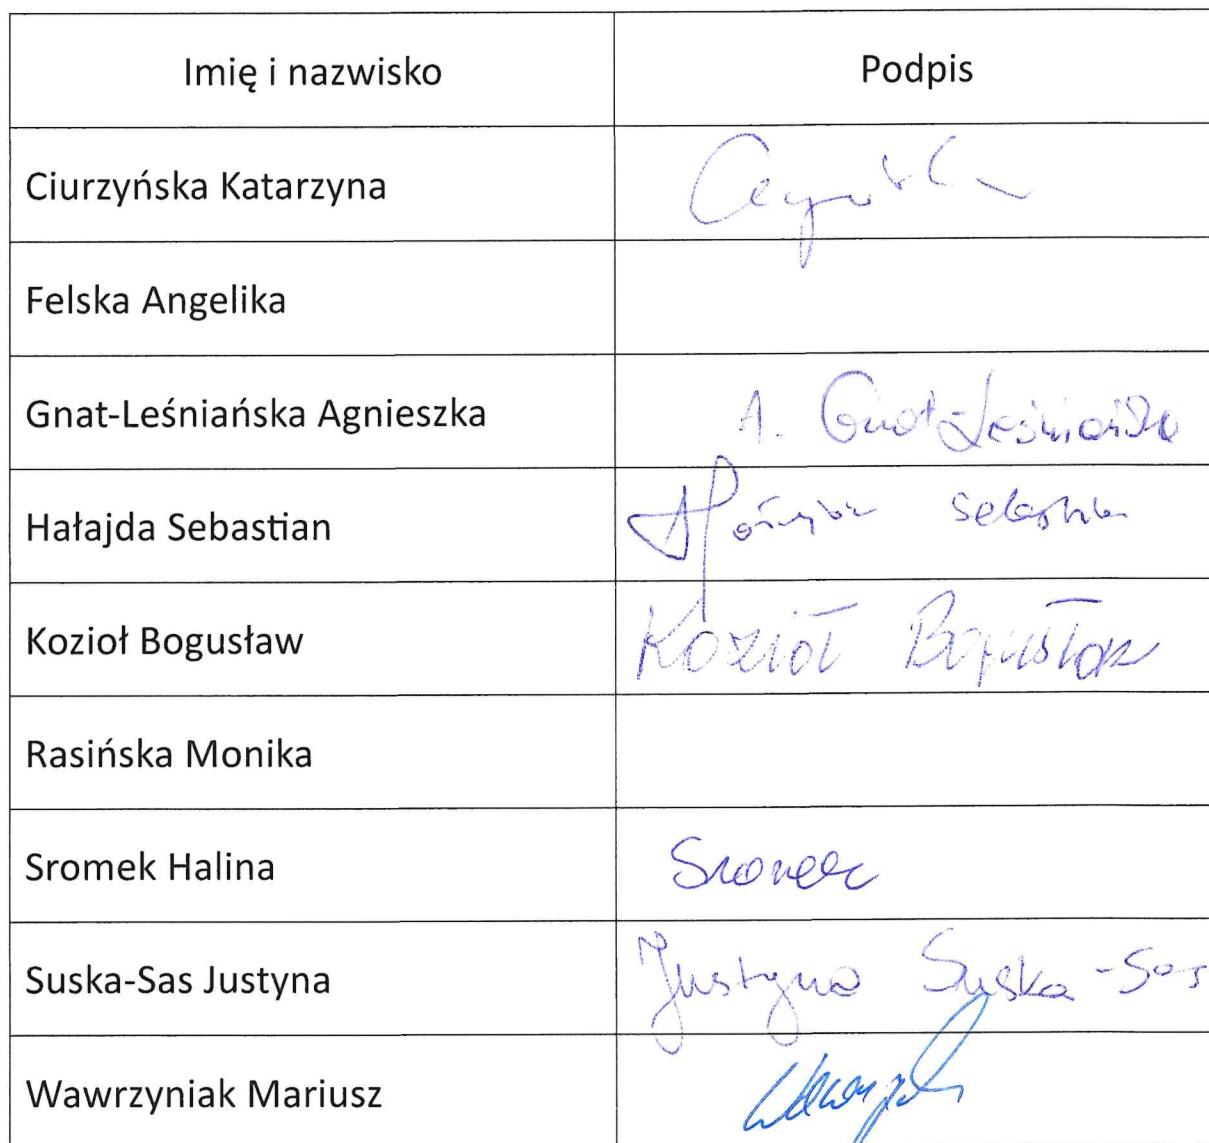 Imię i nazwisko Podpis
Ciurzyńska Katarzyna
Felska Angelika
Gnat-Leśniańska Agnieszka A. Gnat-Leśniańska
Hałajda Sebastian Sebastian
Kozioł Bogusław Kozioł Bogusław
Rasińska Monika
Sromek Halina Sromek
Suska-Sas Justyna Justyna Suska-Sas
Wawrzyniak Mariusz